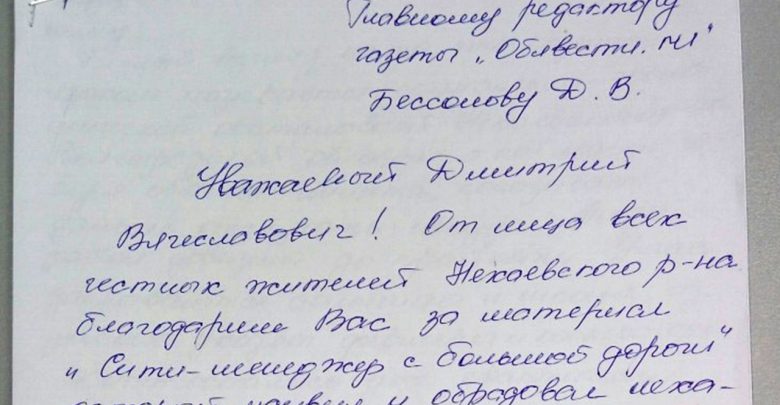 Главному редактору
газеты „Облвести.ru"
Бессолову Д. В.
Уважаемый Дмитрий
Вячеславович! От лица всех
честных жителей Нехаевского р-на
благодарим Вас за материал
„Сити-менеджер с большой дороги"
и обрадовал неха-